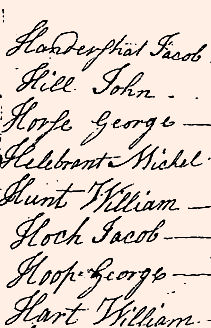 Handershat Jacob
Hill John -
Horse George —
Helebrant Michel
Hunt William —
Hoch Jacob —
Hoop George —
Hart William -